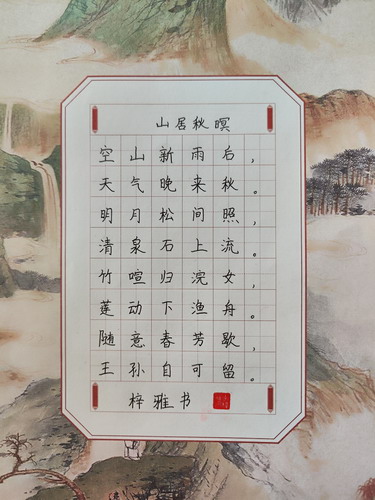 山居秋暝
空山新雨后，
天气晚来秋。
明月松间照，
清泉石上流。
竹喧归浣女，
莲动下渔舟。
随意春芳歇，
王孙自可留。
梓雅书